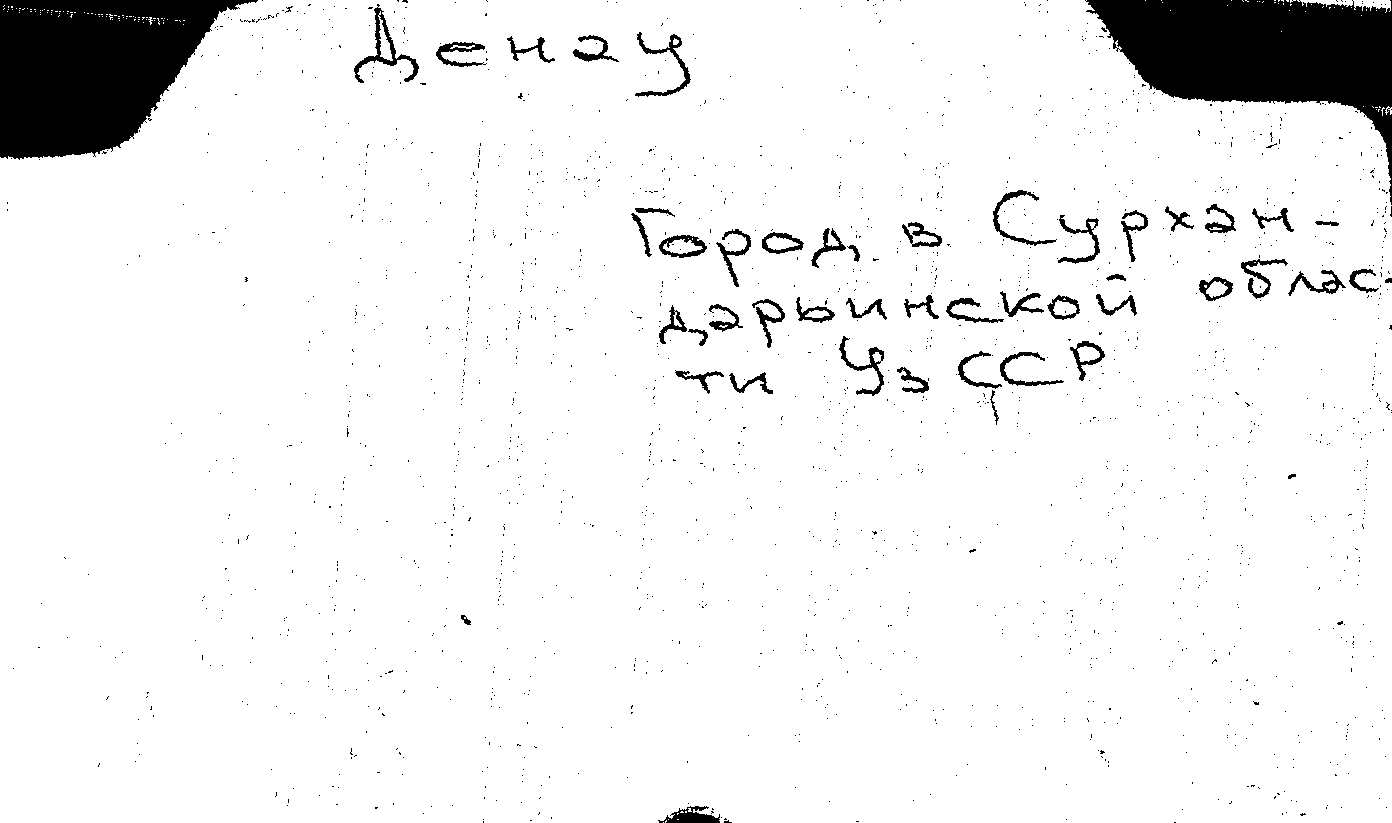 Денау
Город в Сурхан-
дарьинской облас-
ти УзССР